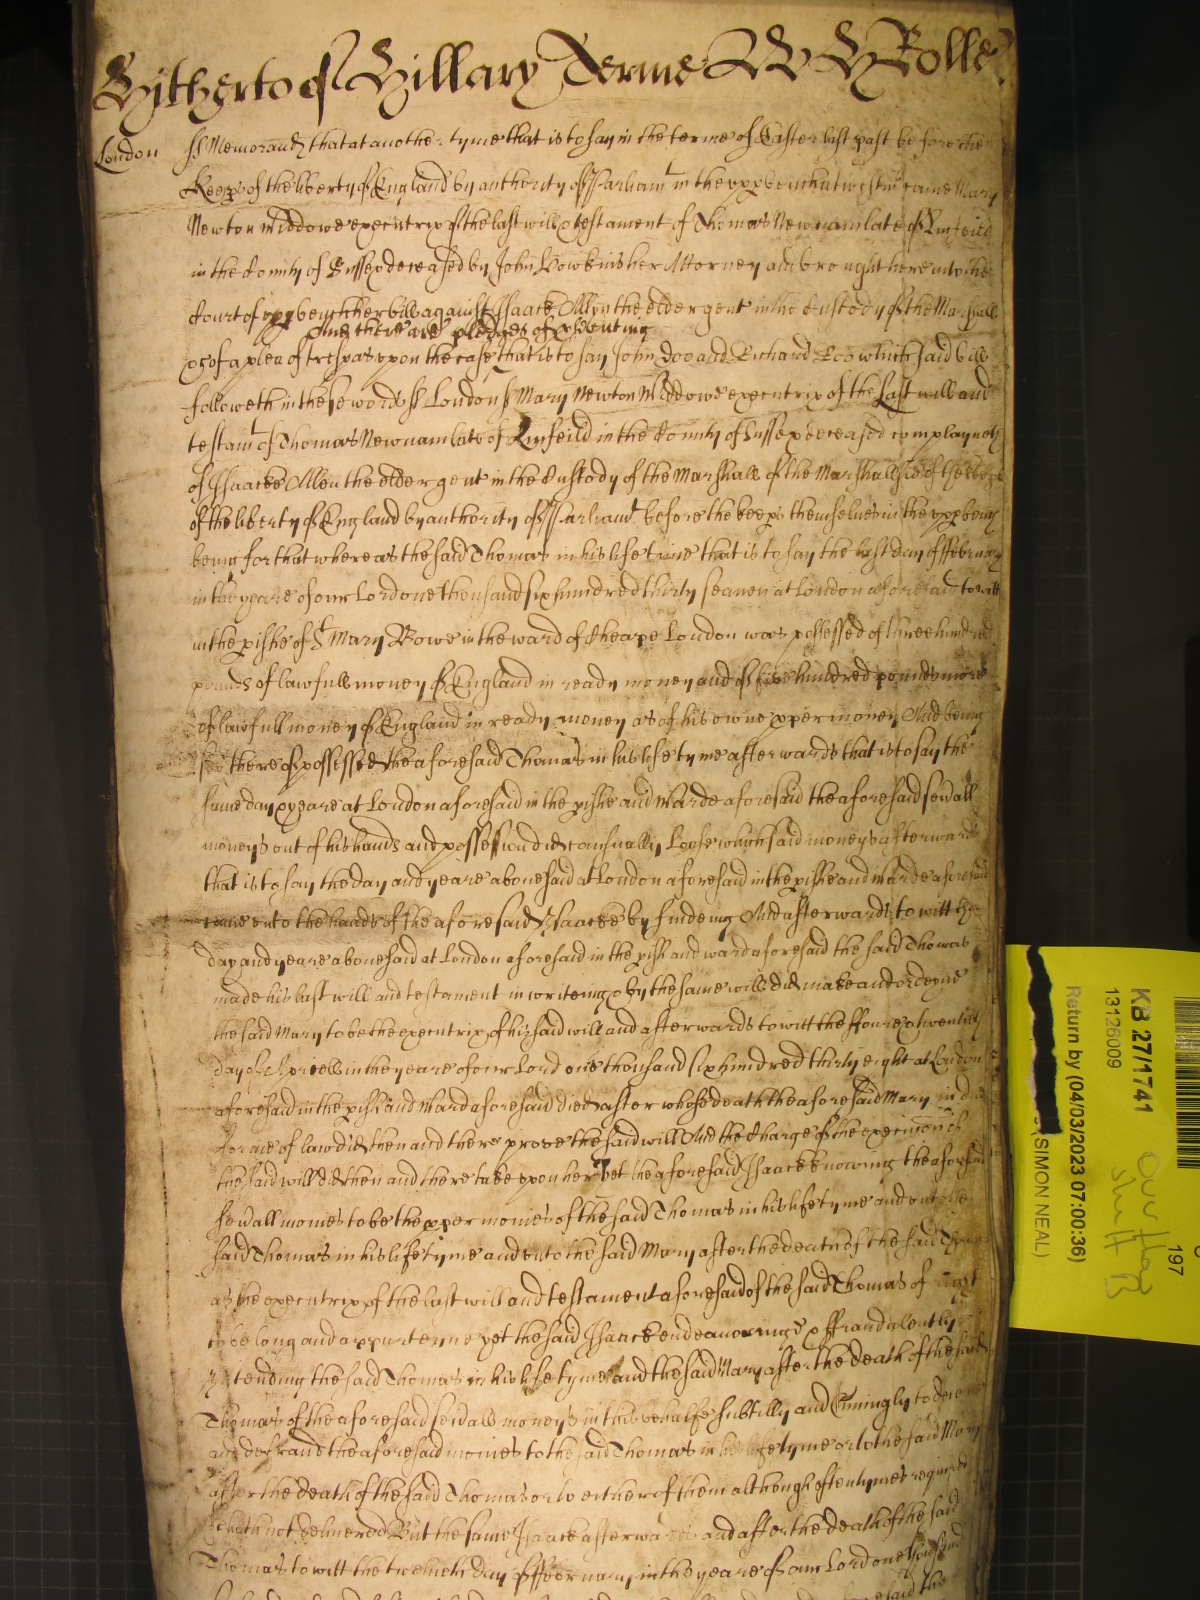 Hitherto of Hillary Terme W H Rolle
London ss Memorand that at another tyme that is to say in the terme of Easter last past before the
Keeps of the liberty of England by authority of Parliamt in the upp bench at Westm came Mary
Newton widdowe executrix of the last will & testament of Thomas Newnam late of Linfeild
in the County of Sussex deceased by John Hawkins her Attorney and brought here into the
Court of upp bench her bill against Isaack Allen the elder gent in the Custody of the Marshall
and there are pledges of prosecuting
&c of a plea of trespas upon the case that is to say John Doo and Richard Roo which said bill
followeth in these words ss London ss Mary Newton Widdowe executrix of the Last will and
testamt of Thomas Newnam late of Linfeild in the County of Sussex deceased complayneth
of Isaacke Allen the elder gent in the Custody of the Marshall of the Marshallsie of the keeps
of the liberty of England by authority of Parliamt before the keeps themselves in the upp bench
being for that whereas the said Thomas in his life time that is to say the last day of ffebruary
in the yeare of our Lord one thousand six hundred thirty seaven at London aforesaid to witt
in the pishe of St Mary Bowe in the ward of Cheape London was possessed of three hundred
pounds of lawfull money of England in ready money and of five hundred pounds more
of lawfull money of England in ready money as of his owne pper money And being
so thereof possessed the aforesaid Thomas in his life tyme afterwards that is to say the
same day & yeare at London aforesaid in the pishe and Warde aforesaid the aforesaid sevall
moneys out of his hands and possession did casually Loose which said moneys afterwards
that is to say the day and yeare abovesaid at London aforesaid in the pishe and Warde aforesaid
came unto the hands of the aforesaid Isaacke by findeing And afterwards to witt the
day and yeare abovesaid at London aforesaid in the pish and ward aforesaid the said Thomas
made his last will and testament in writeing & by the same will did make and ordeyne
the said Mary to be the executrix of his said will and afterwards to witt the ffoure & twentieth
day of Aprill in the yeare of our Lord one thousand six hundred thirty eight at London
aforesaid in the pish and Ward aforesaid died after whose death the aforesaid Mary in due
forme of law did then and there prove the said will And the Charge of the execution of
the said will did then and there take upon her Yet the aforesaid Isaack knowing the aforesaid
sevall monies to be the pper monies of the said Thomas in his life tyme and unto the
said Thomas in his life tyme and unto the said Mary after the death of the said Thomas
as the executrix of the last will and testament aforesaid of the said Thomas of right
to belong and appurteine yet the said Isaack endeavoring & ffraudulently
intending the said Thomas in his life tyme and the said Mary after the death of the said
Thomas of the aforesaid sevall moneys in this behalfe subtilly and Cuningly to deceive
and defraud the aforesaid monies to the said Thomas in his life tyme or to the said Mary
after the death of the said Thomas or to either of them although often tymes required
hath not delivered But the same Isaack afterwards and after the death of the said
Thomas to witt the twentieth day of ffebruary in the yeare of our Lord one thousand
said the
KB 27/1741
13126009
Return by (04/03/2023 07:00:36)
(SIMON NEAL)
197